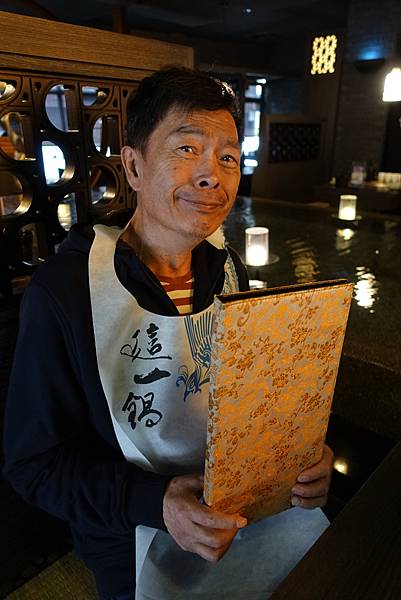 這一鍋